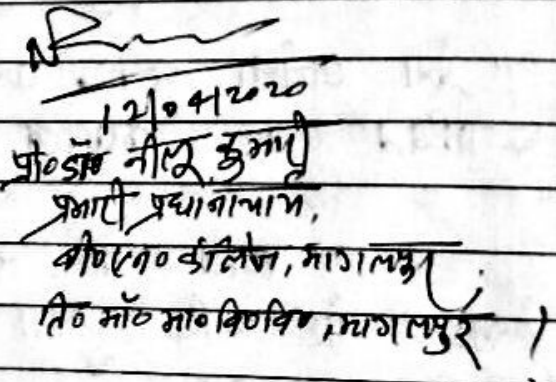 12/04/2020
प्रो० डॉ० नीलू कुमारी
प्रभारी प्रधानाचार्य,
बी०एन० कॉलेज, भागलपुर,
ति० माँ० भा० वि०वि०, भागलपुर।